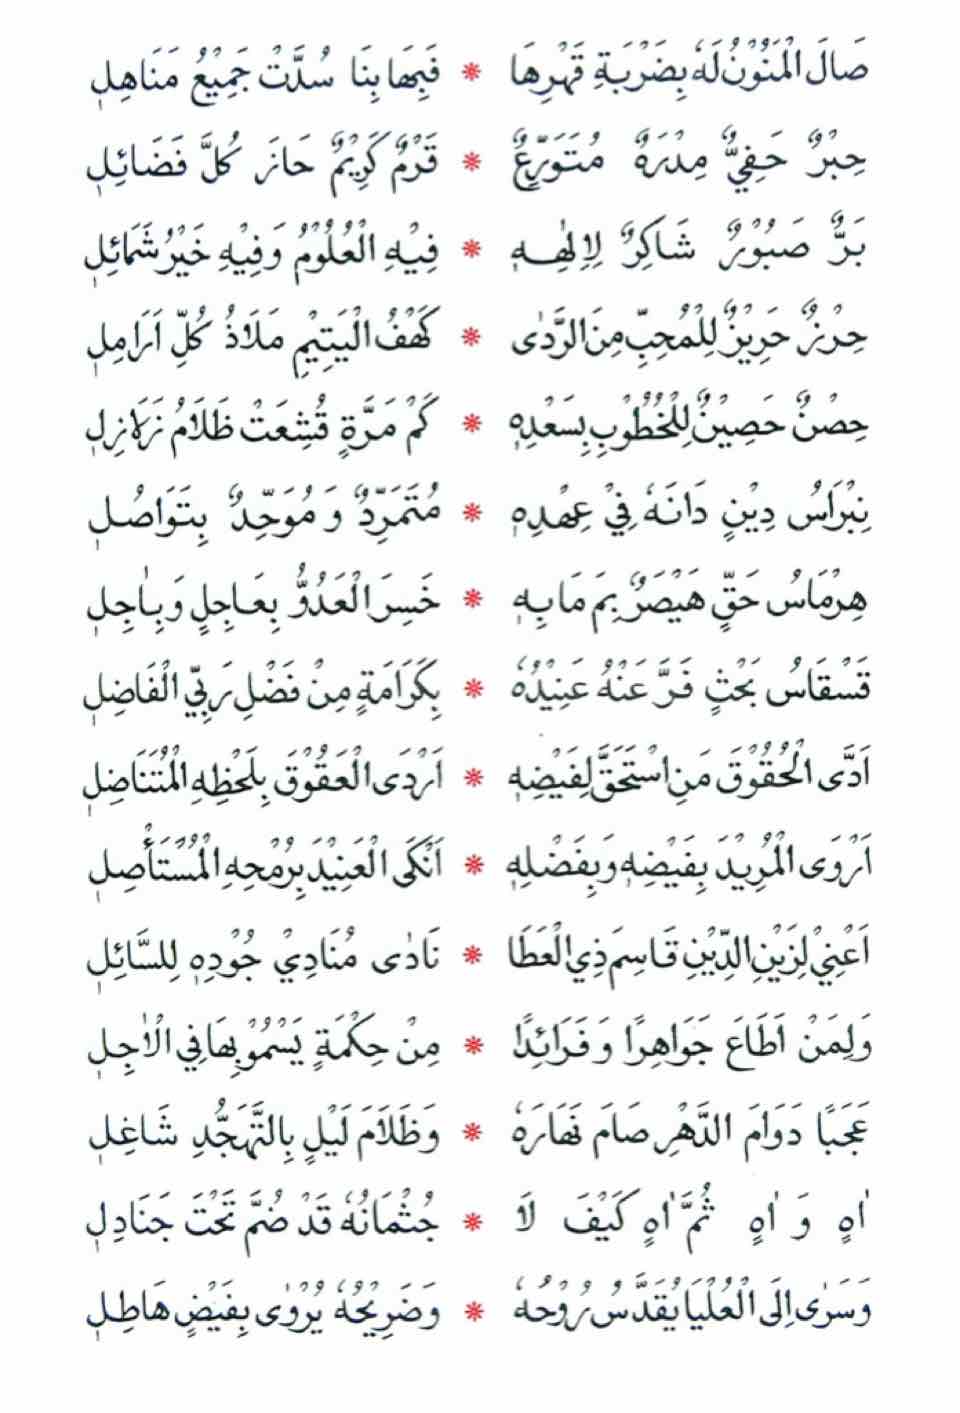 صَالَ الْمَنُوْنُ لَهٗ بِضَرْبَةِ قَهْرِهَا * فَبِهَا بِنَا سُدَّتْ جَمِيْعُ مَنَاهِلٖ
حِبْرٌ حَفِيٌّ مِدْرَهٌ مُتَوَرِّعٌ * قَرْمٌ كَرِيْمٌ حَازَ كُلَّ فَضَائِلٖ
بَرٌّ صَبُوْرٌ شَاكِرٌ لِاِلٰهِهٖ * فِيْهِ الْعُلُوْمُ وَفِيْهِ خَيْرُ شَمَائِلٖ
حِرْزٌ حَرِيْزٌ لِلْمُحِبِّ مِنَ الرَّدٰى * كَهْفُ الْيَتِيْمِ مَلَاذُ كُلِّ اَرَامِلٖ
حِصْنٌ حَصِيْنٌ لِلْخُطُوْبِ بِسَعْدِهٖ * كَمْ مَرَّةٍ قُشِعَتْ ظَلَامُ زَلَازِلٖ
نِبْرَاسُ دِيْنٍ دَانَهٗ فِيْ عِهْدِهٖ * مُتَمَرِّدٌ وَ مُوَحِّدٌ بِتَوَاصُلٖ
هِرْمَاسُ حَقٍّ هَيْصَرٌ بِمَ مَا بِهٖ * خَسِرَ الْعَدُوُّ بِعَاجِلٍ وَبِاٰجِلٖ
قَسْقَاسُ بَحْثٍ فَرَّ عَنْهُ عَنِيْدُهٗ * بِكَرَامَةٍ مِنْ فَضْلِ رَبِّي الْفَاضِلٖ
اَدَّى الْحُقُوْقَ مَنِ اسْتَحَقَّ لِفَيْضِهٖ * اَرْدَى الْعَقُوْقَ بِلَحْظِهِ الْمُتَنَاضِلٖ
اَرْوَى الْمُرِيْدَ بِفَيْضِهٖ وَبِفَضْلِهٖ * اَنْكَى الْعَنِيْدَ بِرُمْحِهِ الْمُسْتَأْصِلٖ
اَعْنِيْ لِزَيْنِ الدِّيْنِ قَاسِمَ ذِي الْعَطَا * نَادٰى مُنَادِيْ جُوْدِهٖ لِلسَّائِلٖ
وَلِمَنْ اَطَاعَ جَوَاهِرًا وَ فَرَائِدًا * مِنْ حِكْمَةٍ يَسْمُوْ بِهَا فِي الْاٰجِلٖ
عَجَبًا دَوَامَ الدَّهْرِ صَامَ نَهَارَهٗ * وَظَلَامَ لَيْلٍ بِالتَّهَجُّدِ شَاغِلٖ
اٰهٍ وَ اٰهٍ ثُمَّ اٰهٍ كَيْفَ لَا * جُثْمَانُهٗ قَدْ ضُمَّ تَحْتَ جَنَادِلٖ
وَسَرٰى اِلَى الْعُلْيَا يُقَدَّسُ رُوْحُهٗ * وَضَرِيْحُهٗ يُرْوٰى بِفَيْضٍ هَاطِلٖ